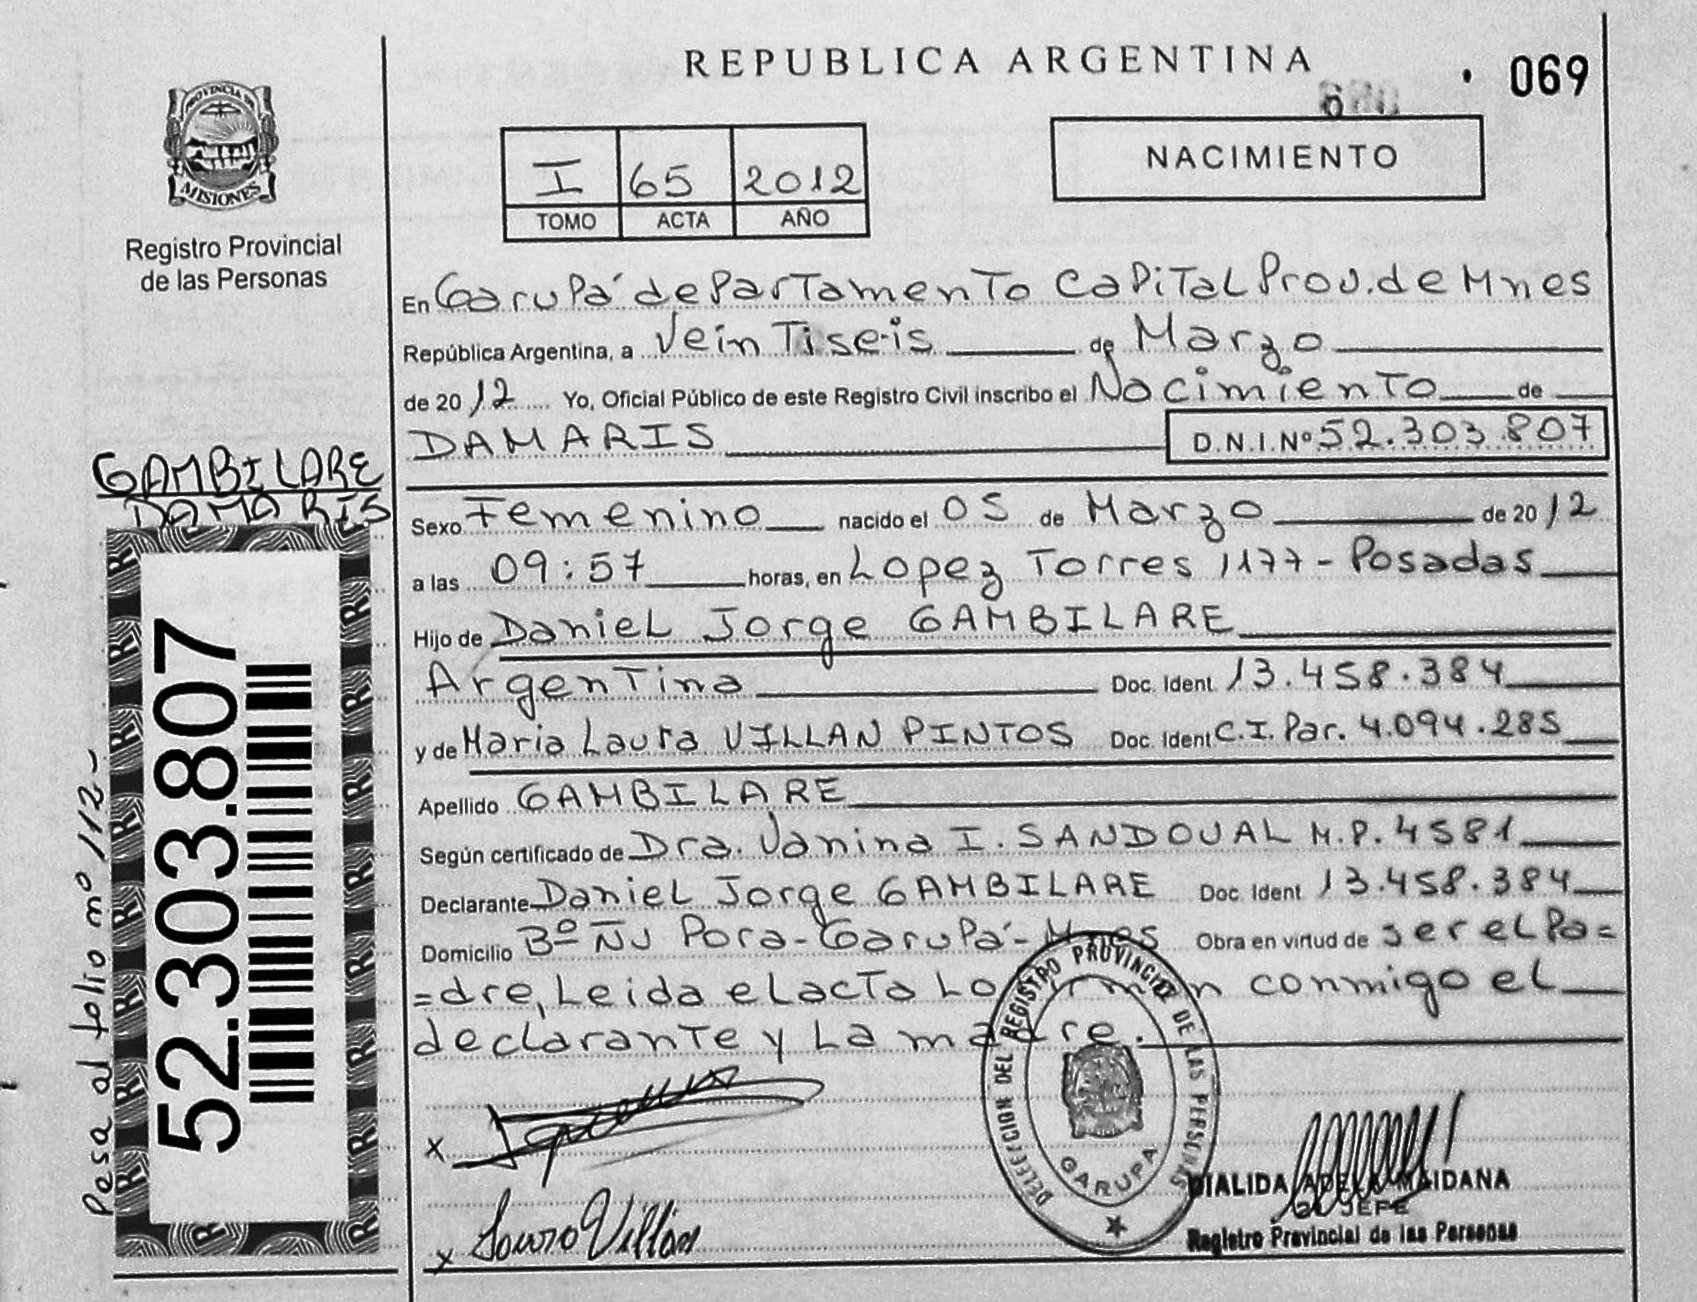 REPUBLICA ARGENTINA
069
PROVINCIA DE
MISIONES
Registro Provincial
de las Personas
I 65 2012
TOMO ACTA AÑO
NACIMIENTO
En Garupá departamento Capital Prov. de Mnes
República Argentina, a Veintiseis de Marzo
de 2012 Yo, Oficial Público de este Registro Civil inscribo el Nacimiento de
DAMARIS D.N.I.Nº 52.303.807
GAMBILARE
DAMARIS
Sexo Femenino nacido el 05 de Marzo de 2012
a las 09:57 horas, en Lopez Torres 1177 - Posadas
Hijo de Daniel Jorge GAMBILARE
Argentina Doc. Ident 13.458.384
y de Maria Laura VILLAN PINTOS Doc. Ident C.I. Par. 4.094.285
Apellido GAMBILARE
Según certificado de Dra. Vanina I. SANDOVAL M.P. 4581
Declarante Daniel Jorge GAMBILARE Doc. Ident 13.458.384
Domicilio Bº Ñu Pora - Garupá - Mnes Obra en virtud de ser el Pa=
=dre, Leida el acta Lo firman conmigo el
declarante y La madre.
52.303.807
Pasa al folio nº 112-
x
x Laura Villan
DELEGACION DEL REGISTRO PROVINCIAL DE LAS PERSONAS
GARUPA
DIALIDA ADELA MAIDANA
JEFE
Registro Provincial de las Personas